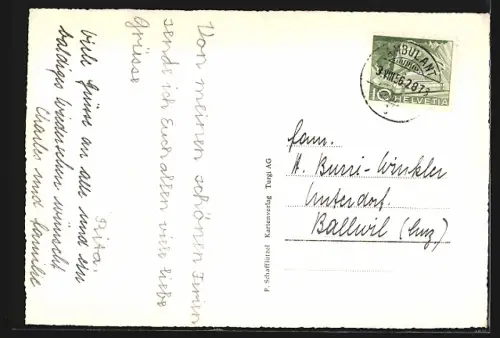 Von meinen schönen Ferien
sende ich Euch allen viele liebe
Grüsse
Rita.
Viele Grüsse an alle und ein
baldiges Wiedersehen wünscht
Charles und Familie
P. Schaffützel Kartenverlag Turgi AG
AMBULANT
10 HELVETIA
Fam.
A. Burri-Winkler
Unterdorf.
Ballwil (Luz.)